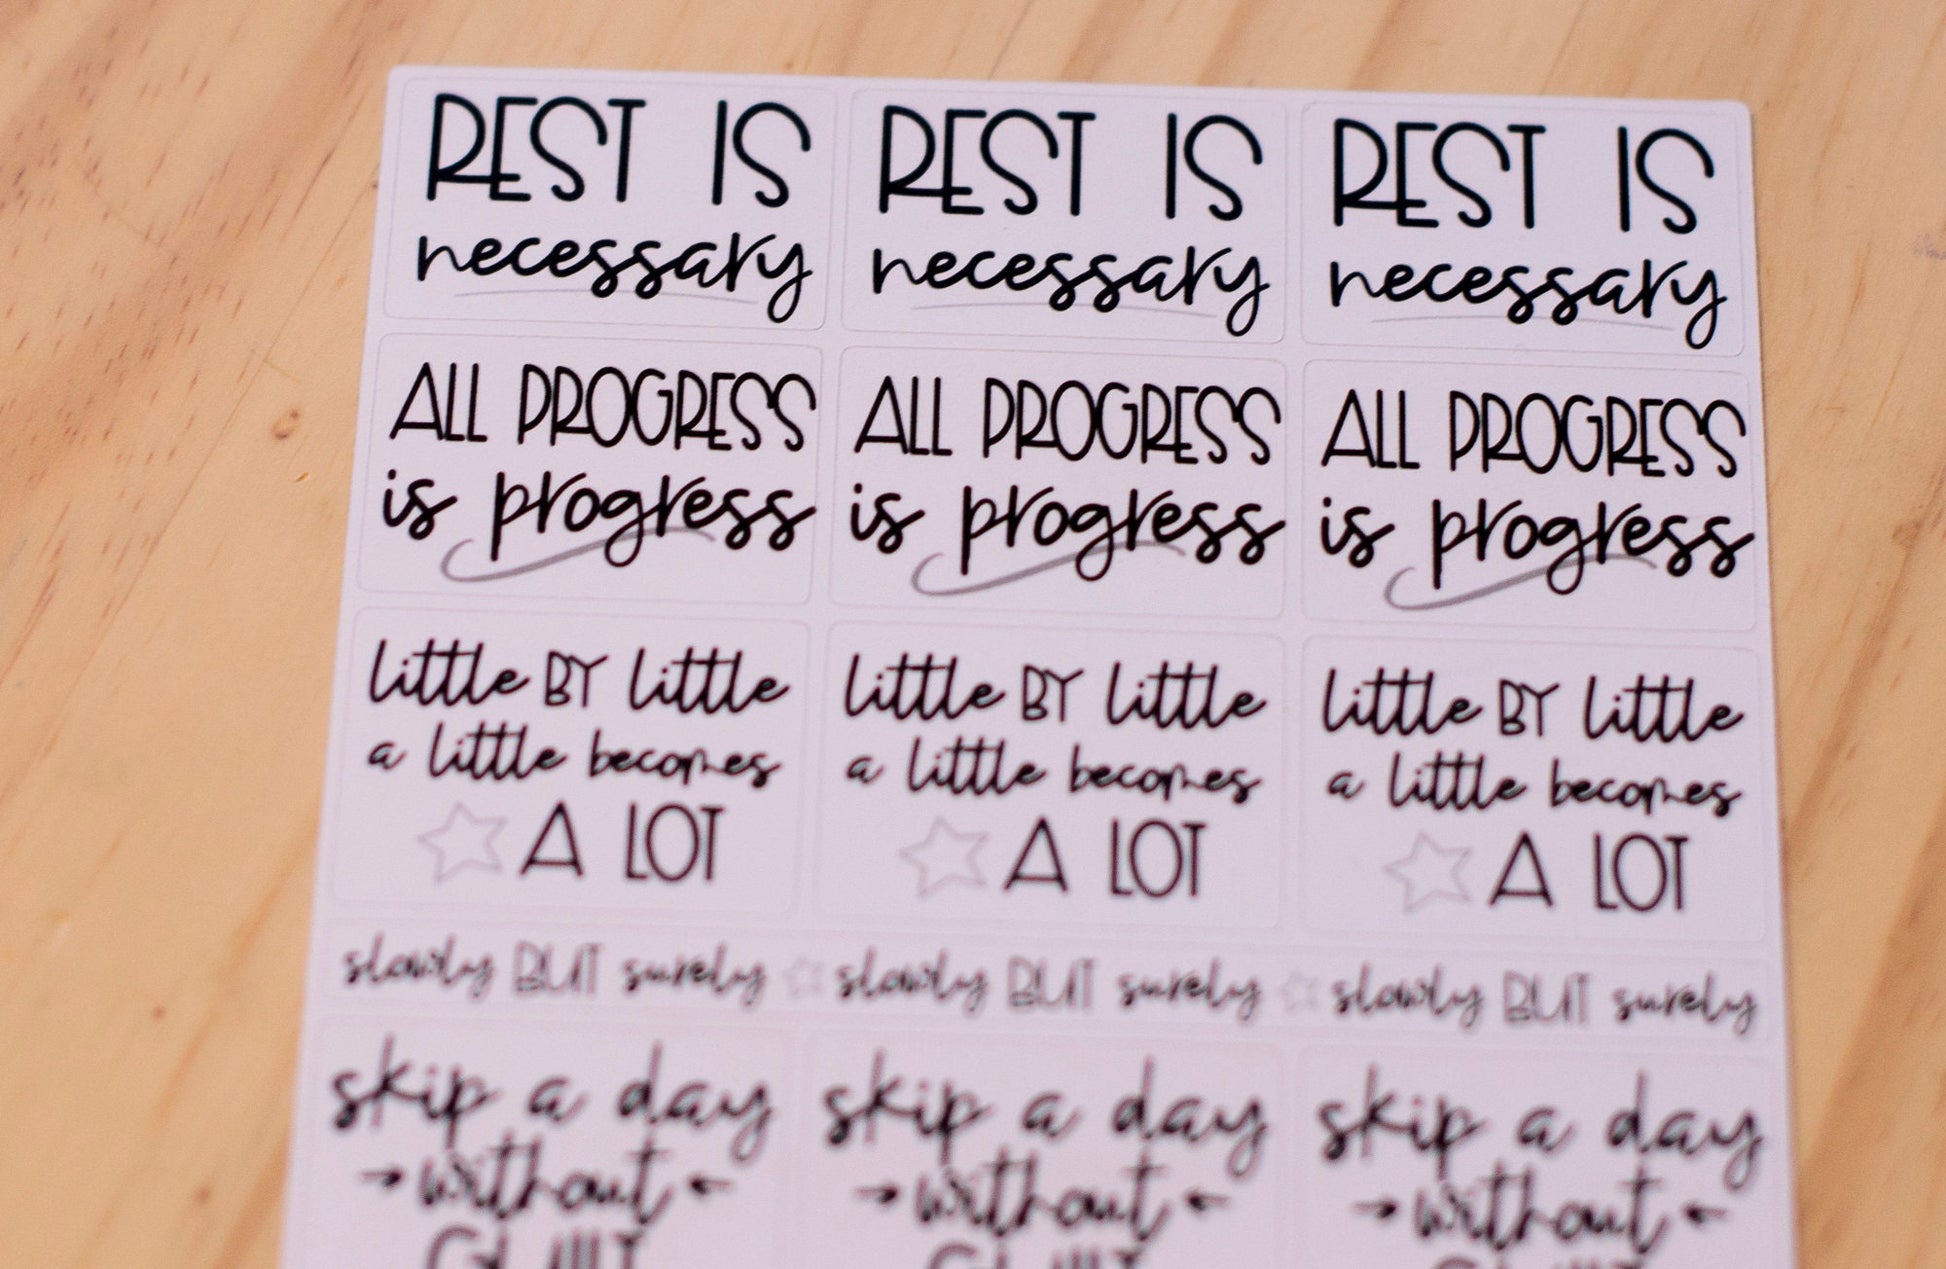 REST IS REST IS REST IS
necessary necessary necessary
ALL PROGRESS ALL PROGRESS ALL PROGRESS
is progress is progress is progress
little BY little little BY little little BY little
a little becomes a little becomes a little becomes
A LOT A LOT A LOT
slowly BUT surely slowly BUT surely slowly BUT surely
skip a day skip a day skip a day
without without without